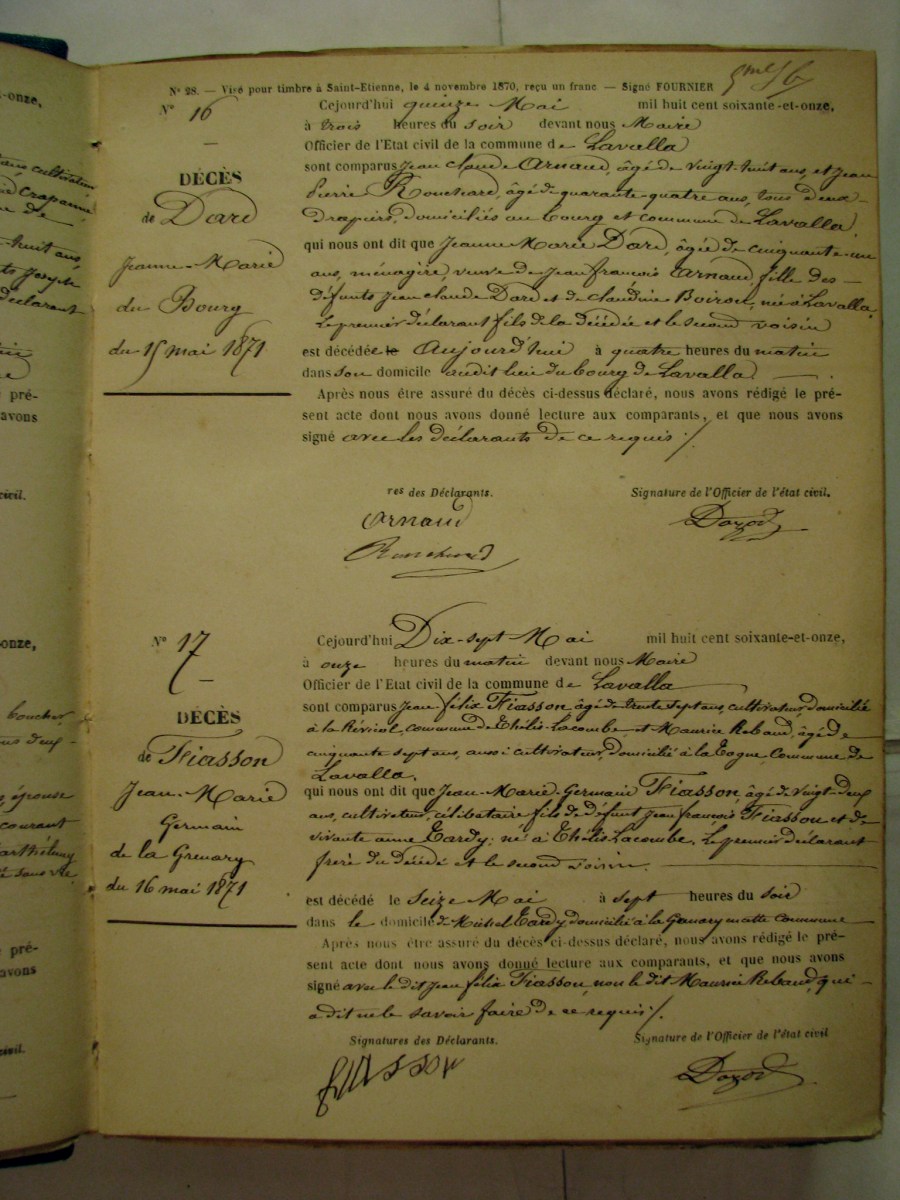 N° 28. — Visé pour timbre à Saint-Etienne, le 4 novembre 1870, reçu un franc — Signé FOURNIER
N° 16
DÉCÈS
de Dard
Jeanne-Marie
du Bourg
du 15 mai 1871
Cejourd'hui quinze Mai mil huit cent soixante-et-onze,
à trois heures du soir devant nous Maire
Officier de l'Etat civil de la commune de Lavalla
sont comparus Jean claude Arnaud, âgé de vingt-huit ans, et Jean
Pierre Rouchard, âgé de quarante-quatre ans, tous deux
drapiers, domiciliés au bourg et commune de Lavalla,
qui nous ont dit que Jeanne-Marie Dard, âgée de cinquante-un
ans, ménagère, veuve de Jean françois Arnaud, fille des
défunts Jean claude Dard et de claudine Boiron, née à Lavalla.
Le premier déclarant fils de la Décédée et le second voisin
est décédée le Aujourd'hui à quatre heures du matin
dans son domicile audit lieu du bourg de Lavalla
Après nous être assuré du décès ci-dessus déclaré, nous avons rédigé le pré-
sent acte dont nous avons donné lecture aux comparants, et que nous avons
signé avec les déclarants de ce requis ./.
res des Déclarants.
Signature de l'Officier de l'état civil.
Arnaud
Rouchard
N° 17
DÉCÈS
de Fiasson
Jean-Marie
Germain
de la Grenary
du 16 mai 1871
Cejourd'hui Dix-sept Mai mil huit cent soixante-et-onze,
à onze heures du matin devant nous Maire
Officier de l'Etat civil de la commune de Lavalla
sont comparus Jean félix Fiasson âgé de trente sept ans, cultivateur, domicilié
à la commune de Thélis-Lacombe et Maurice Rebaud, âgé de
cinquante sept ans, aussi cultivateur, domicilié à la commune de
Lavalla.
qui nous ont dit que Jean-Marie-Germain Fiasson, âgé de vingt-deux
ans, cultivateur, célibataire fils de défunt Jean françois Fiasson et de
vivante anne Tardy; né à Thélis Lacombe. Le premier déclarant
frère du Décédé et le second voisin.
est décédé le Seize Mai à sept heures du soir
dans le domicile de Michel Tardy domicilié à la commune
Après nous être assuré du décès ci-dessus déclaré, nous avons rédigé le pré-
sent acte dont nous avons donné lecture aux comparants, et que nous avons
signé avec le dit Jean félix Fiasson, non le dit Maurice Rebaud, qui
a dit ne le savoir faire de ce requis ./.
Signatures des Déclarants.
Signature de l'Officier de l'état civil
fiasson